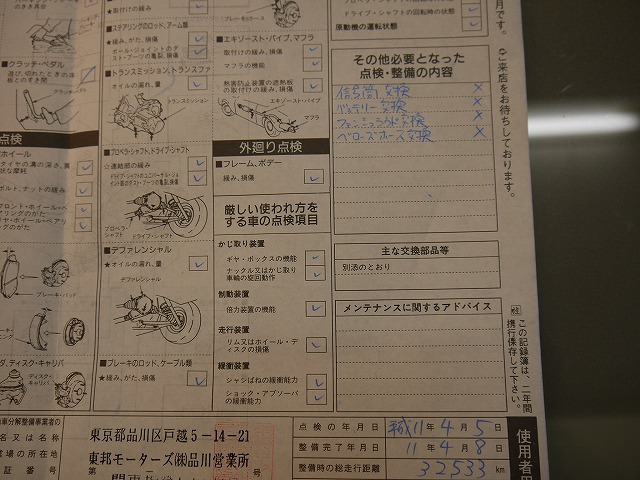 ★取付けの緩み
■ステアリングのロッド、アーム類
★緩み、がた、損傷
ボール・ジョイントのダスト・ブーツの亀裂、損傷
■トランスミッション、トランスファ
★オイルの漏れ、量
トランスミッション
■プロペラ・シャフト、ドライブ・シャフト
☆連結部の緩み
ドライブ・シャフトのユニバーサル・ジョイント部のダスト・ブーツの亀裂、損傷
プロペラ・シャフト
ドライブ・シャフト
■デファレンシャル
★オイルの漏れ、量
デファレンシャル
■ブレーキのロッド、ケーブル類
★緩み、がた、損傷
■クラッチ・ペダル
遊び、切れたときの床板とのすき間
点検
ホイール
タイヤの溝の深さ、異状な摩耗
ボルト、ナットの緩み
フロント・ホイール・ベアリングのがた
リヤ・ホイール・ベアリングのがた
ブレーキ・パッド
ディスク・キャリパ
ディスク・キャリパ
ブレーキ・ホース
■エキゾースト・パイプ、マフラ
取付けの緩み、損傷
マフラの機能
熱害防止装置の遮熱板の取付けの緩み、損傷
エキゾースト・パイプ
マフラ
外廻り点検
■フレーム、ボデー
緩み、損傷
厳しい使われ方をする車の点検項目
かじ取り装置
ギヤ・ボックスの機能
ナックル又はかじ取り車輪の旋回動作
制動装置
倍力装置の機能
走行装置
リム又はホイール・ディスクの損傷
緩衝装置
シャシばねの緩衝能力
ショック・アブソーバの緩衝能力
ドライブ・シャフトの回転時の状態
原動機の運転状態
その他必要となった点検・整備の内容
信号筒交換 ×
バッテリー交換 ×
ベローズホース交換 ×
主な交換部品等
別添のとおり
メンテナンスに関するアドバイス
月です。
ご来店をお待ちしております。
㊟この記録簿は、二年間携行保存して下さい。
使用者用
東京都品川区戸越5－14－21
東邦モーターズ㈱品川営業所
点検の年月日 平成11年4月5日
整備完了年月日 11年4月8日
整備時の総走行距離 32533 km